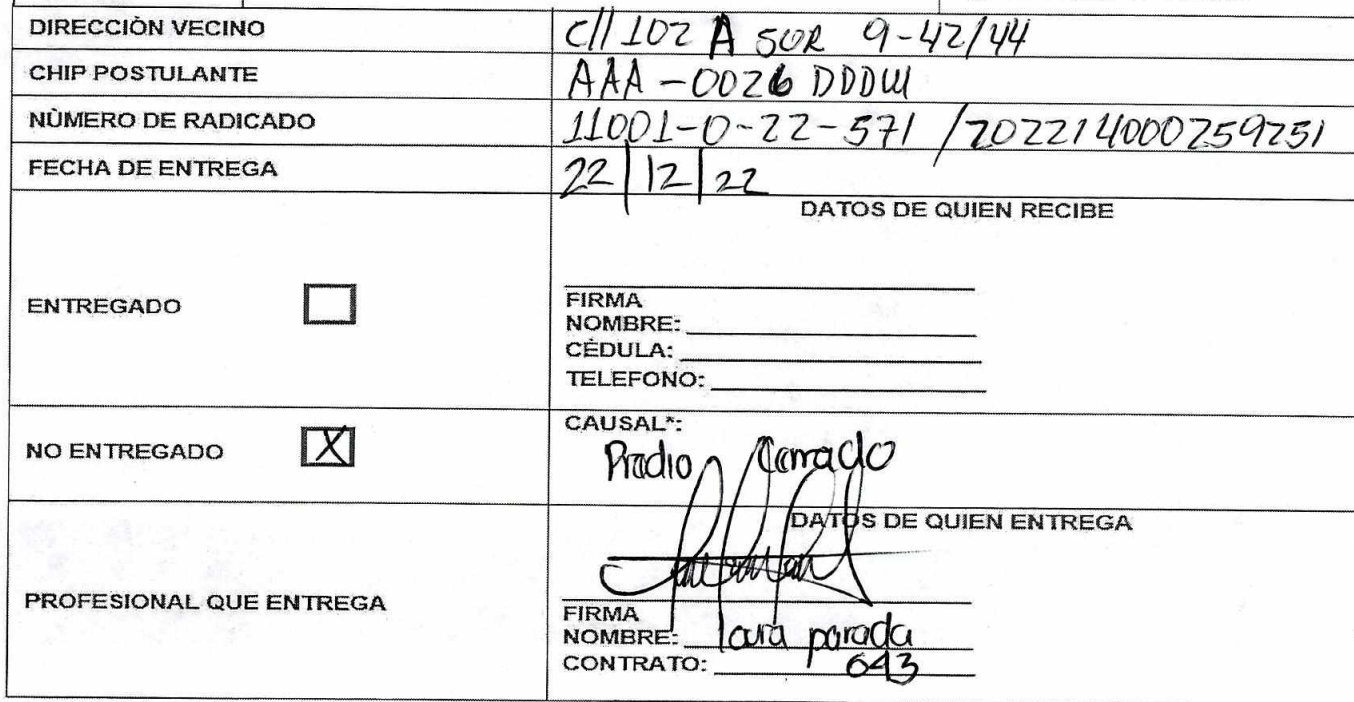 DIRECCIÓN VECINO cll 102 A SUR 9-42/44
CHIP POSTULANTE AAA-0026 DDDW
NÙMERO DE RADICADO 11001-0-22-571 /202214000259251
FECHA DE ENTREGA 22|12|22
DATOS DE QUIEN RECIBE
ENTREGADO
FIRMA
NOMBRE:
CÉDULA:
TELEFONO:
NO ENTREGADO X
CAUSAL*:
Predio Cerrado
DATOS DE QUIEN ENTREGA
PROFESIONAL QUE ENTREGA
FIRMA
NOMBRE: laura parada
CONTRATO: 643